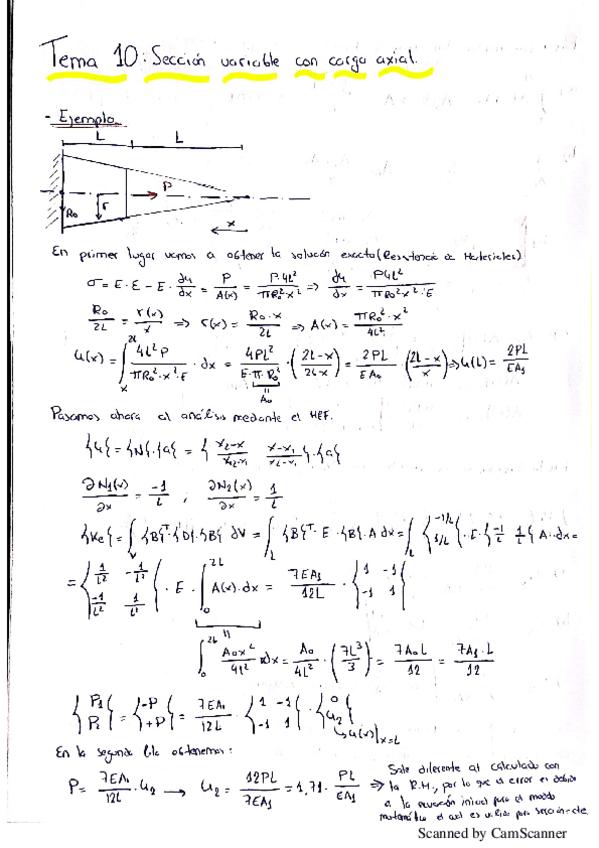 Tema 10: Sección variable con carga axial.
- Ejemplo
L L
P
R₀ r
x
En primer lugar vamos a obtener la solución exacta (Resistencia de Materiales)
σ = E · ε = E · du/dx = P/A(x) = P·4L²/πR₀²·x² ⇒ du/dx = P4L²/πR₀²·x²·E
R₀/2L = r(x)/x ⇒ r(x) = R₀·x/2L ⇒ A(x) = πR₀²·x²/4L²
u(x) = ∫ₓ^2L 4L²P/πR₀²·x²·E · dx = 4PL²/E·π·R₀² · (2L-x/2L·x) = 2PL/EA₀ · (2L-x/x) ⇒ u(L) = 2PL/EA₁
A₀
Pasamos ahora al análisis mediante el MEF.
{u} = {N}·{a} = { x₂-x/x₂-x₁ x-x₁/x₂-x₁ }·{a}
∂N₁(x)/∂x = -1/L ; ∂N₂(x)/∂x = 1/L
{Ke} = ∫ᵥ {B}ᵀ·{D}·{B} dV = ∫_L {B}ᵀ · E · {B} · A dx = ∫_L { -1/L 1/L } · E · { -1/L 1/L } A · dx =
= { 1/L² -1/L² -1/L² 1/L² } · E · ∫₀^2L A(x)·dx = 7EA₁/12L · { 1 -1 -1 1 }
∫₀^2L A₀x²/4L² dx = A₀/4L² · (7L³/3) = 7A₀L/12 = 7A₁·L/12
{ P₁ P₂ } = { -P +P } = 7EA₁/12L · { 1 -1 -1 1 } · { 0 u₂ }
u(x)|x=L
En la segunda fila obtenemos:
P = 7EA₁/12L · u₂ → u₂ = 12PL/7EA₁ = 1,71 · PL/EA₁ ⇒
Sale diferente al calculado con
la R.M., por lo que el error es debido
a la ecuación inicial para el modelo
matemático el cual es válido para sección cte.
Scanned by CamScanner